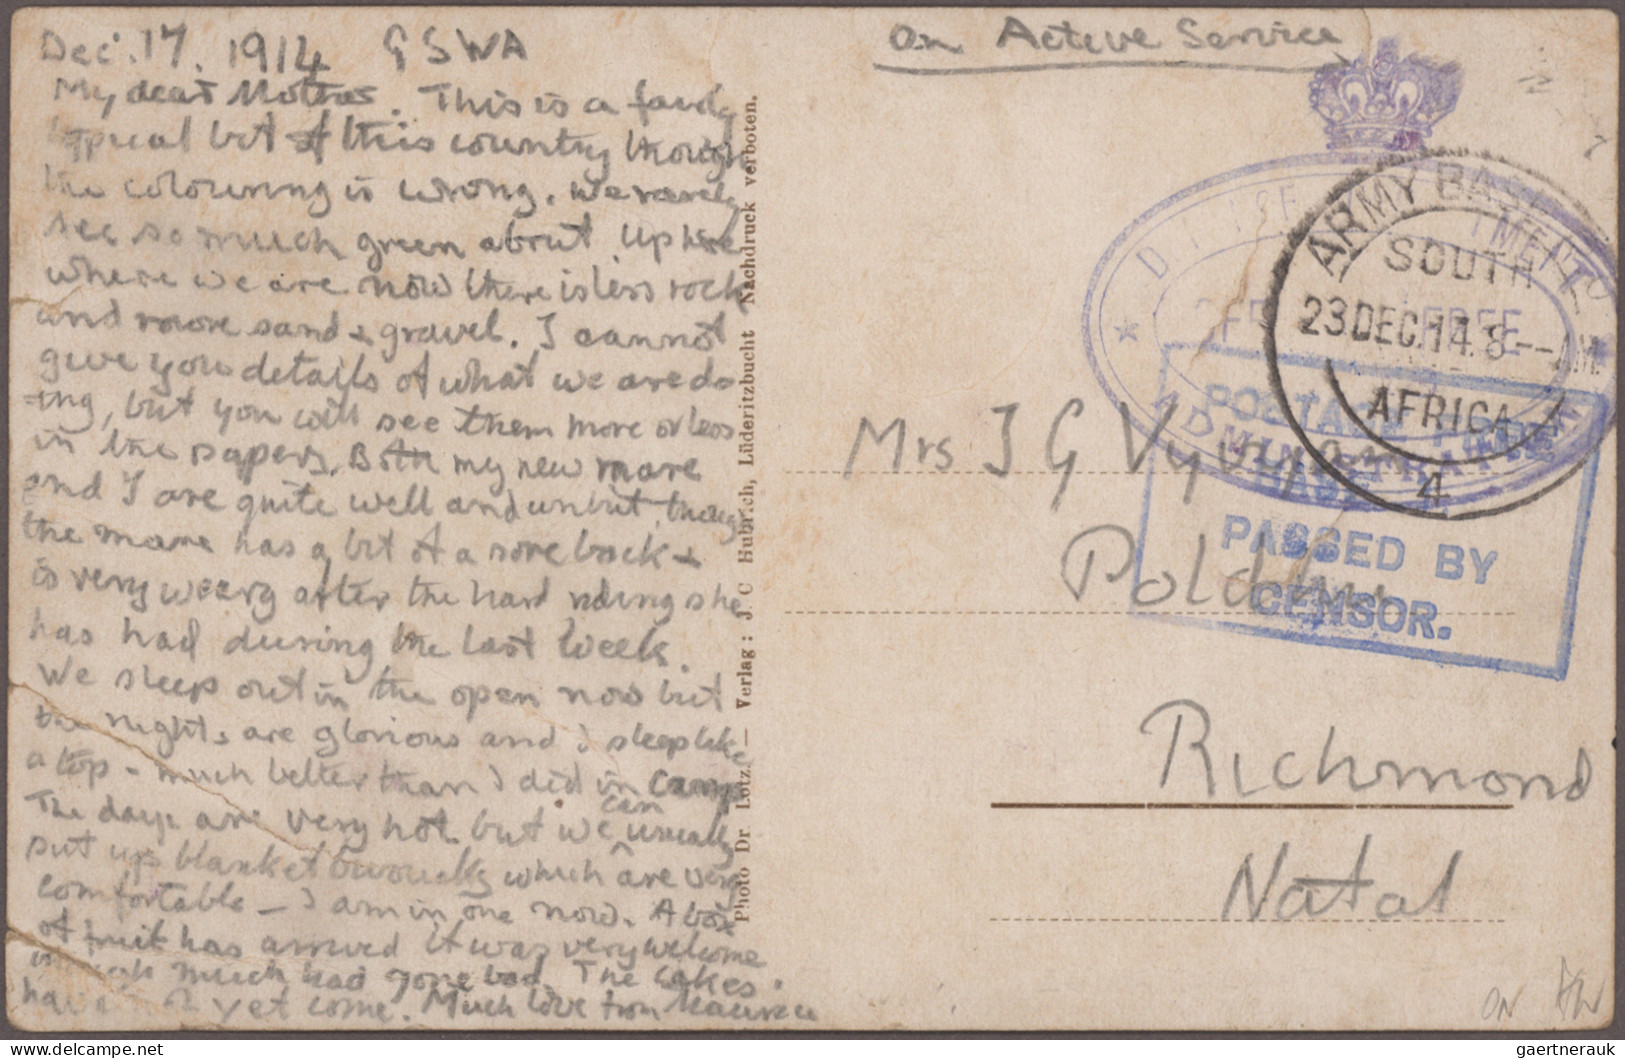 Dec. 17. 1914 GSWA
My dear Mother. This is a fairly
typical bit of this country though
the colouring is wrong. We rarely
see so much green about. Up here
where we are now there is less rock
and more sand & gravel. I cannot
give you details of what we are do
=ing, but you will see them more or less
in the papers. Both my new mare
and I are quite well and unhurt, though
the mare has a bit of a sore back &
is very weary after the hard riding she
has had during the last week.
We sleep out in the open now but
the nights are glorious and I sleep like
a top - much better than I did in camp
The days are very hot but we can usually
put up blanket bivouacks which are very
comfortable - I am in one now. A box
of fruit has arrived it was very welcome
though much had gone bad. The cakes
have not yet come. Much love from Maurice
Photo Dr. Lotz. — Verlag: J. C Hubrich, Lüderitzbucht Nachdruck verboten.
On Active Service
DEFENCE DEPARTMENT
OFFICIAL FREE
ADMINISTRATIVE
ARMY BASE
SOUTH
23 DEC. 14. 8 -- AM
AFRICA
4
POSTAGE FREE
BASE
PASSED BY
CENSOR.
Mrs J G Vyvyan
Poldhu
Richmond
Natal
gaertnerauk